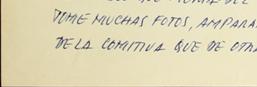 TOME MUCHAS FOTOS, AMPARA
DE LA COMITIVA QUE DE OTRA